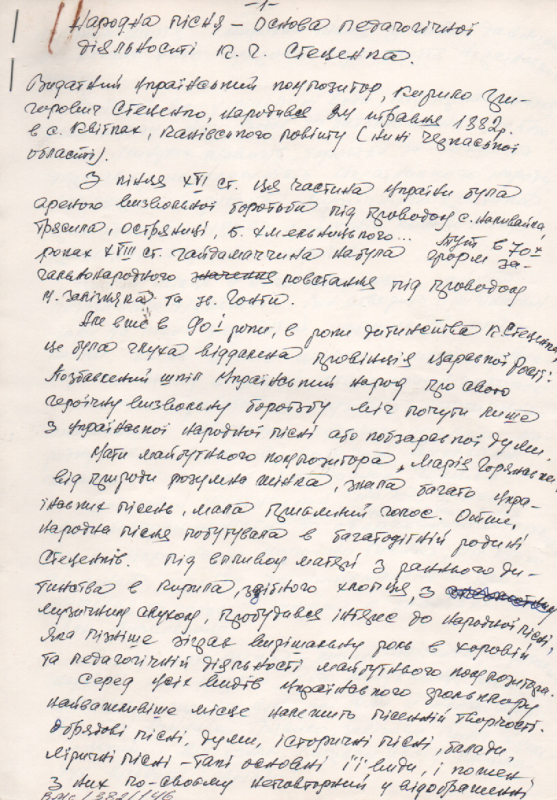 -1-
Народна пісня – основа педагогічної
діяльності К. Г. Стеценка.
Видатний український композитор, Кирило Гри-
горович Стеценко, народився 24 травня 1882р.
в с. Квітках, Канівського повіту (нині Черкаської
області).
З кінця XVI ст. ця частина України була
ареною визвольної боротьби під проводом С. Наливайка,
Трясила, Остряниці, Б. Хмельницького... Тут в 70х
роках XVIII ст. гайдамаччина набула форм за-
гальнонародного значення повстання під проводом
М. Залізняка та Ів. Гонти.
Але вже в 90і роки, в роки дитинства К. Стеценка,
це була глуха віддалена провінція царської Росії.
Позбавлений шкіл Український народ про свою
героїчну визвольну боротьбу міг почути лише
з української народної пісні або кобзарської думи.
Мати майбутнього композитора, Марія Горянська,
від природи розумна жінка, знала багато укра-
їнських пісень, мала приємний голос. Отже,
народна пісня побутувала в багатодітній родині
Стеценків. Під впливом матері з раннього ди-
тинства в Кирила, здібного хлопця, з
музичним слухом, пробудився інтерес до народної пісні,
яка пізніше зіграє вирішальну роль в хоровій
та педагогічній діяльності майбутнього композитора.
Серед усіх видів українського фольклору
найважливіше місце належить пісенній творчості.
Обрядові пісні, думи, історичні пісні, балади,
ліричні пісні – такі основні її види, і кожен
з них по-своєму неповторний у відображенні
1388/146